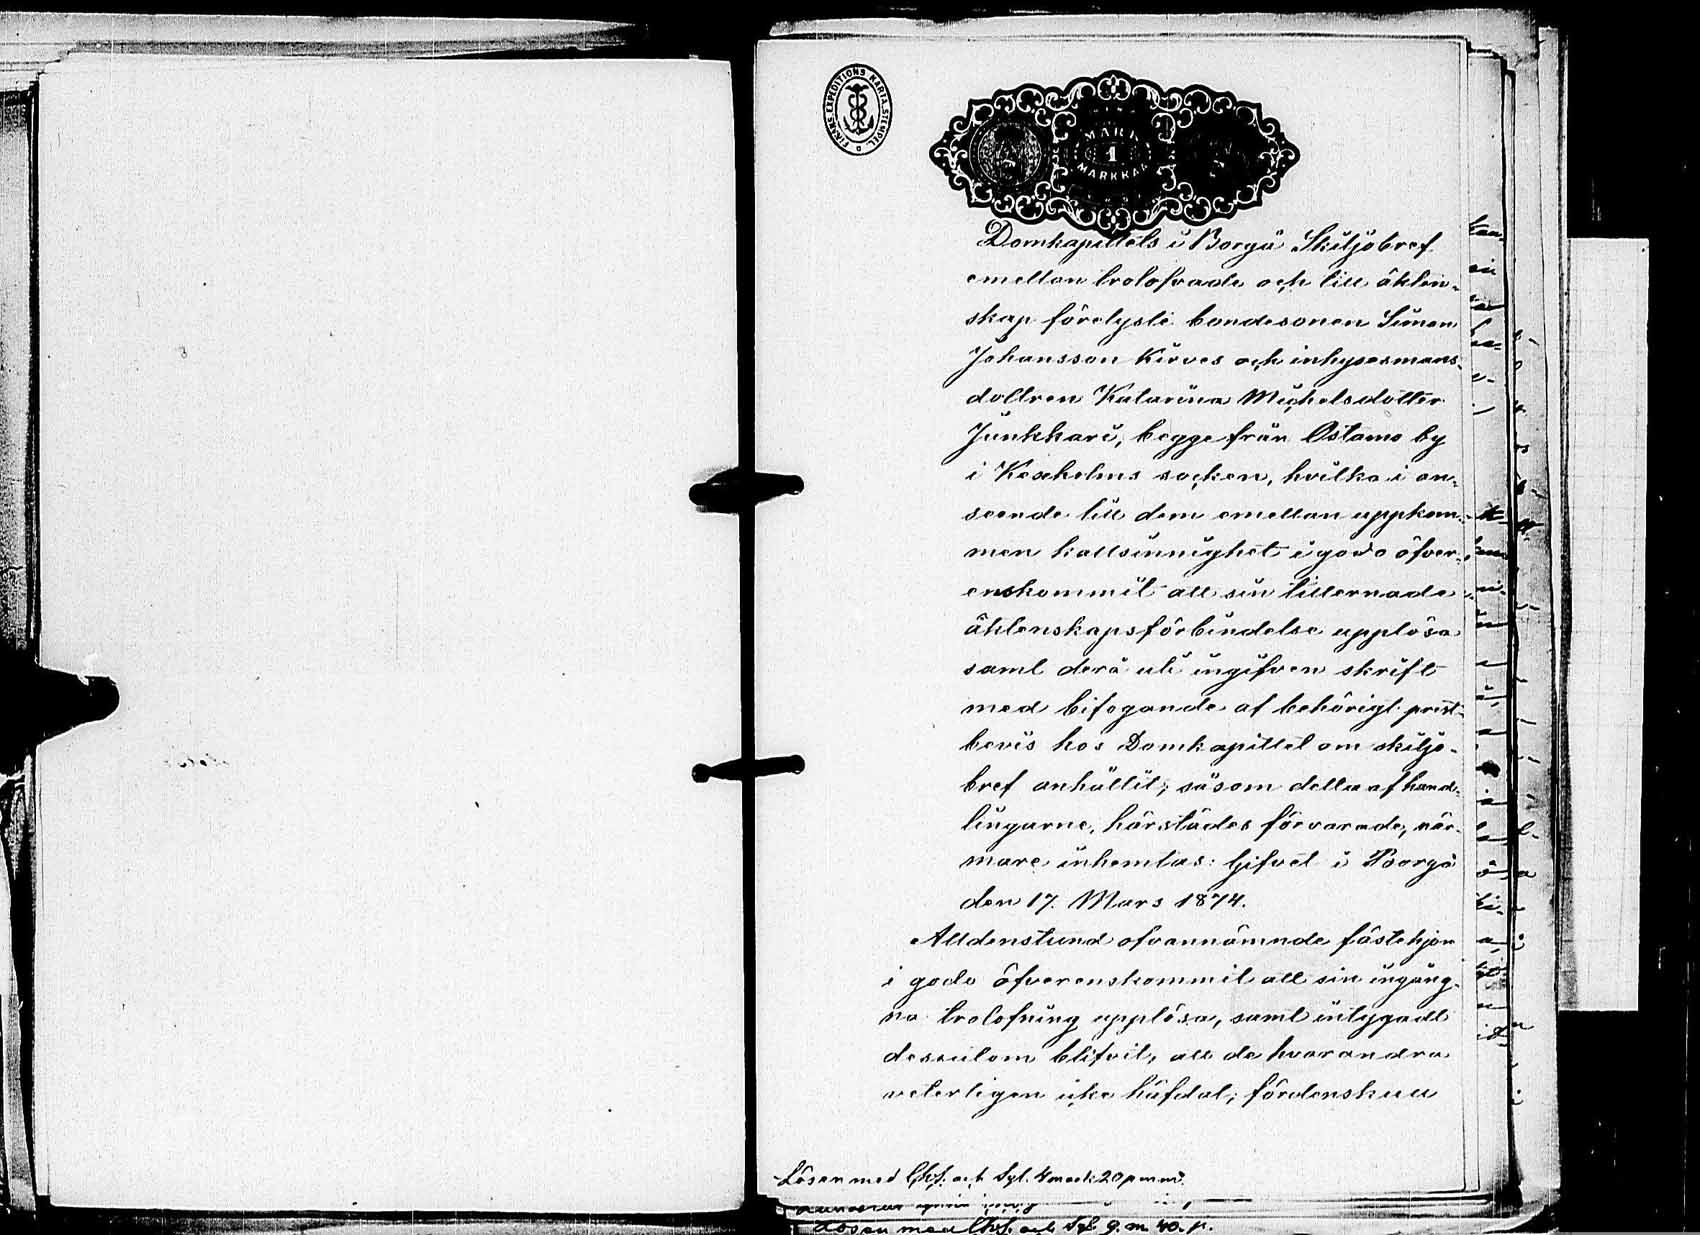 FINSK EXPEDITIONS KARTA STEMPEL
MARK
1
MARKKAA
Domkapittels i Borgå Skiljobref
emellan trolofvade och till äkten-
skap förelyste bondesonen Simon
Johansson Kirves och inhysesmans-
dottren Katarina Michelsdotter
Junkkari, begge från Ostamo by
i Kexholms socken, hvilka i an-
seende till dem emellan uppkom-
men kallsinnighet i godo öfver-
enskommit att sin tillernade
äktenskapsförbindelse upplösa
samt derå uti ingifven skrift
med bifogande af behörigt prest-
bevis hos Domkapittel om skiljo-
bref anhållit; såsom detta af hand-
lingarne, härstädes förvarade, när-
mare inhemtas: Gifvet i Borgå
den 17. Mars 1874.
Alldenstund ofvannämnde fästehjon
i godo öfverenskommit att sin ingång-
na trolofning upplösa, samt intygadt
dessutom blifvit, att de hvarandra
veterligen icke häfdat; fördenskull
Lösen med Chs. och Sgl. 4 mark 20 penni
Lösen med Chs. och Sgl. 9. m 40. p.